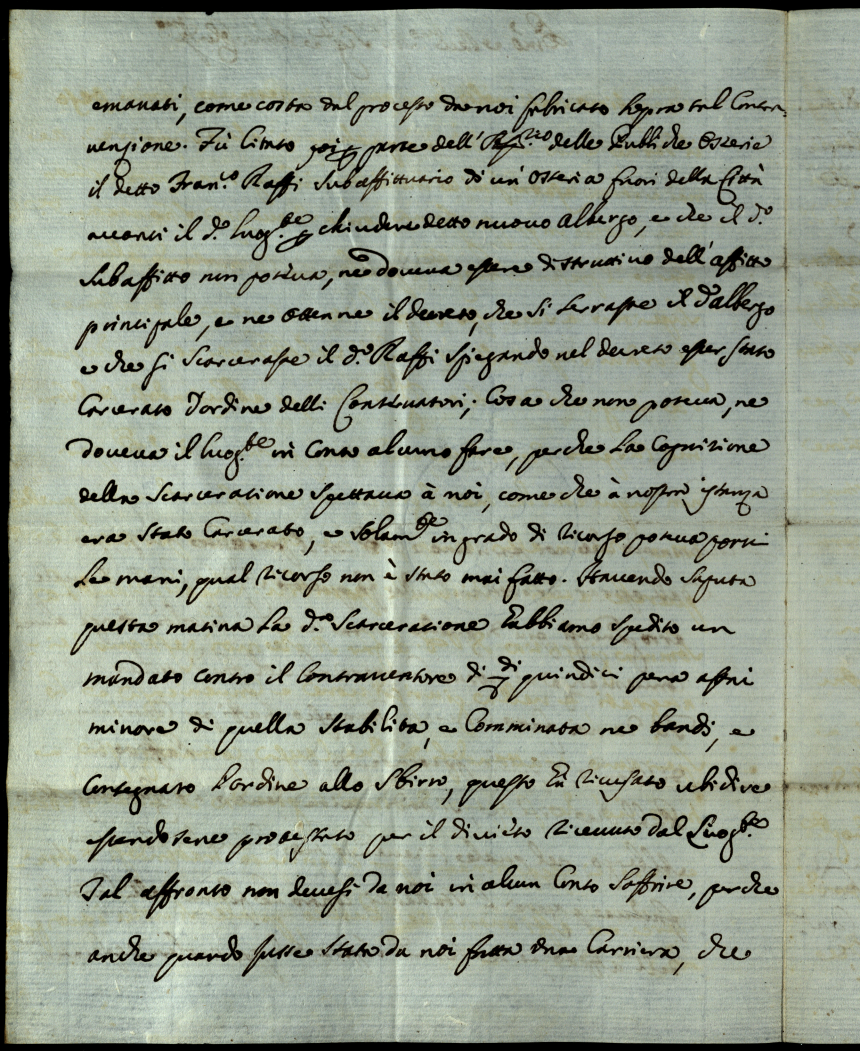 emanati, come costa dal processo da noi fabricato sopra tal Contra-
venzione. Fù Citato poi per parte dell' delle Publiche Osterie
il detto Fran.co Raffi Subaffittuario di un' Osteria fuori della Città
avanti il d.o Luog.te per chiudere detto nuovo albergo, e che il d.o
Subaffitto non poteva, ne doveva essere distruttivo dell' affitto
principale, e ne ottenne il decreto, che si serrasse il d.o albergo
e che si Scarcerasse il d.o Raffi spiegando nel decreto esser stato
Carcerato d'ordine delli Conservatori; Cosa che non poteva, ne
doveva il Luog.te in Conto alcuno fare, perche La Cognizione
della Scarceratione spettava à noi, come che à nostra istanza
era stato Carcerato, e Solam.te in grado di ricorso poteva porvi
Le mani, qual ricorso non è stato mai fatto. Havendo Saputa
questa matina La d.a Scarceratione habbiamo spedito un
mandato contro il Contraventore di di quindici pena assai
minore di quella Stabilita, e Comminata ne bandi, e
Consegnato L'ordine allo Sbirro, questo hà ricusato ubidire
essendosene protestato per il divieto ricevuto dal Luog.te
Tal affronto non devesi da noi in alcun Conto Soffrire, perche
anche quando fusse stata da noi fatta una Carriera, che